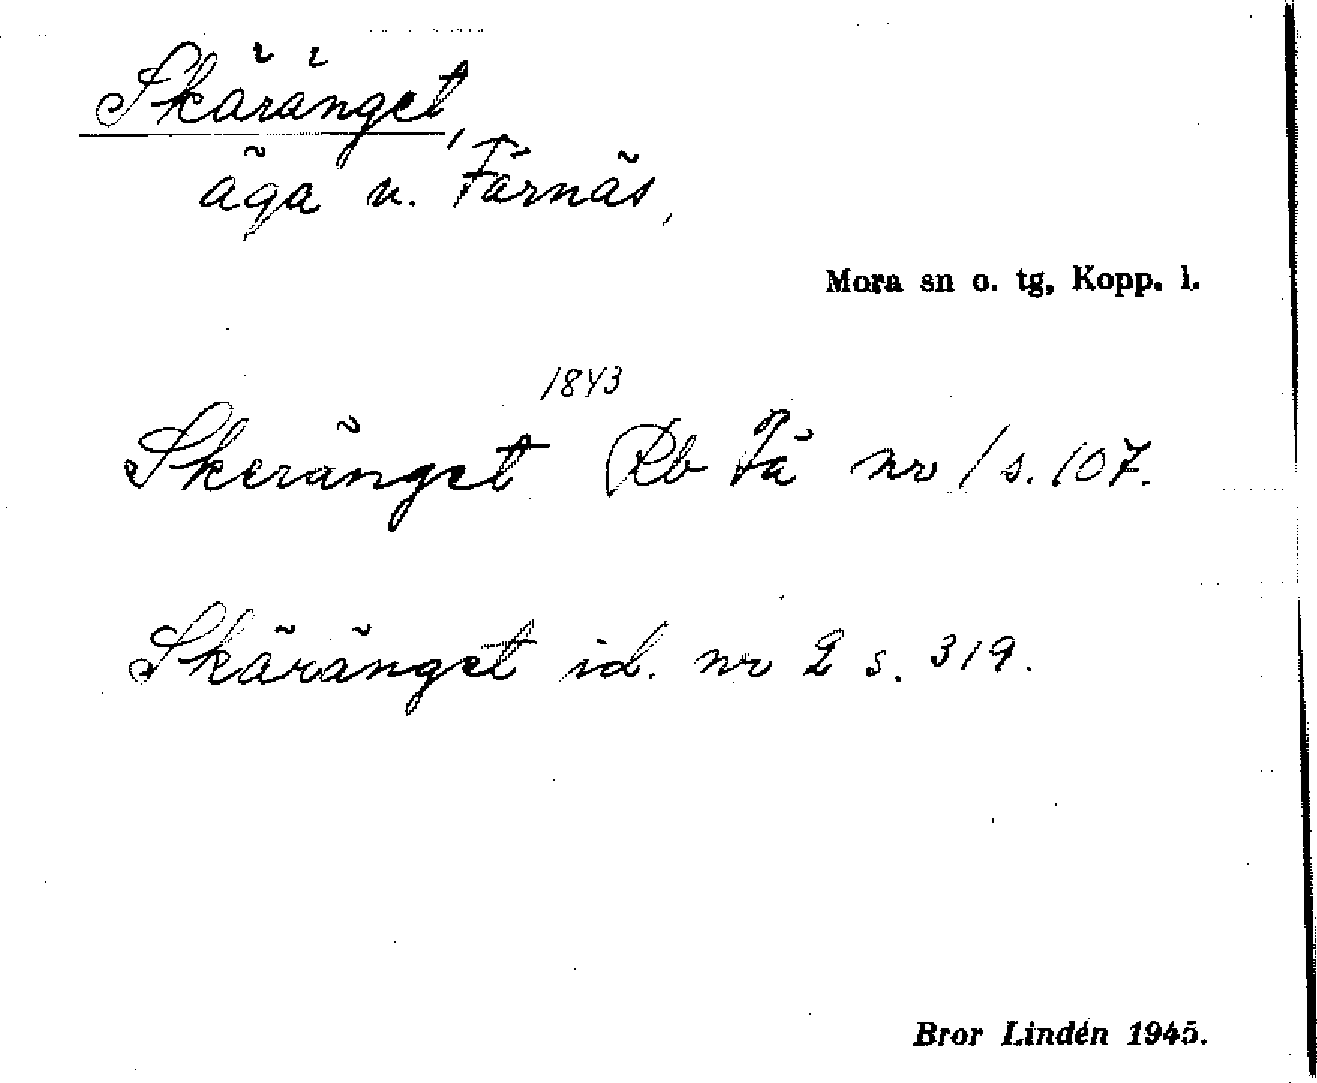 Skäränget,
äga v. Färnäs,
Mora sn o. tg, Kopp. l.
1843
Skeränget Rb Fä nr 1 s. 107.
Skäränget id. nr 2 s. 319.
Bror Lindén 1945.